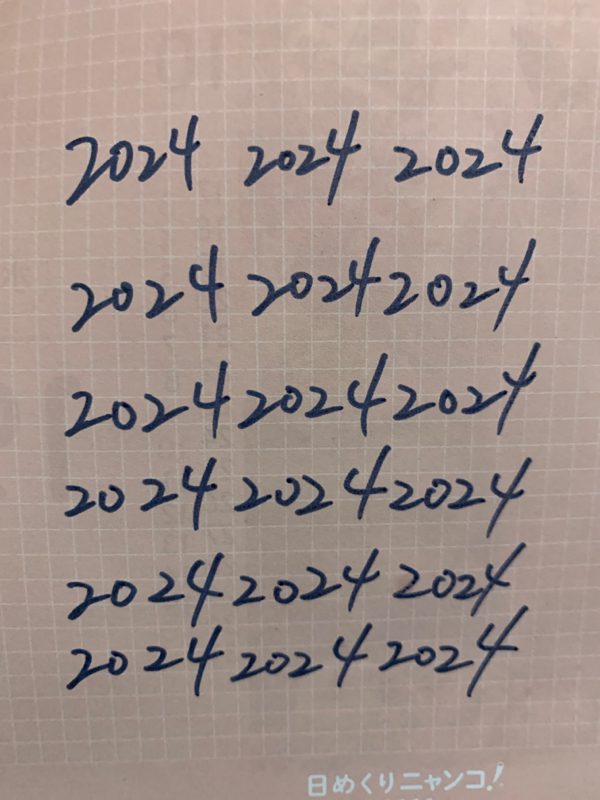 2024 2024 2024
2024 2024 2024
2024 2024 2024
2024 2024 2024
2024 2024 2024
2024 2024 2024
日めくりニャンコ!